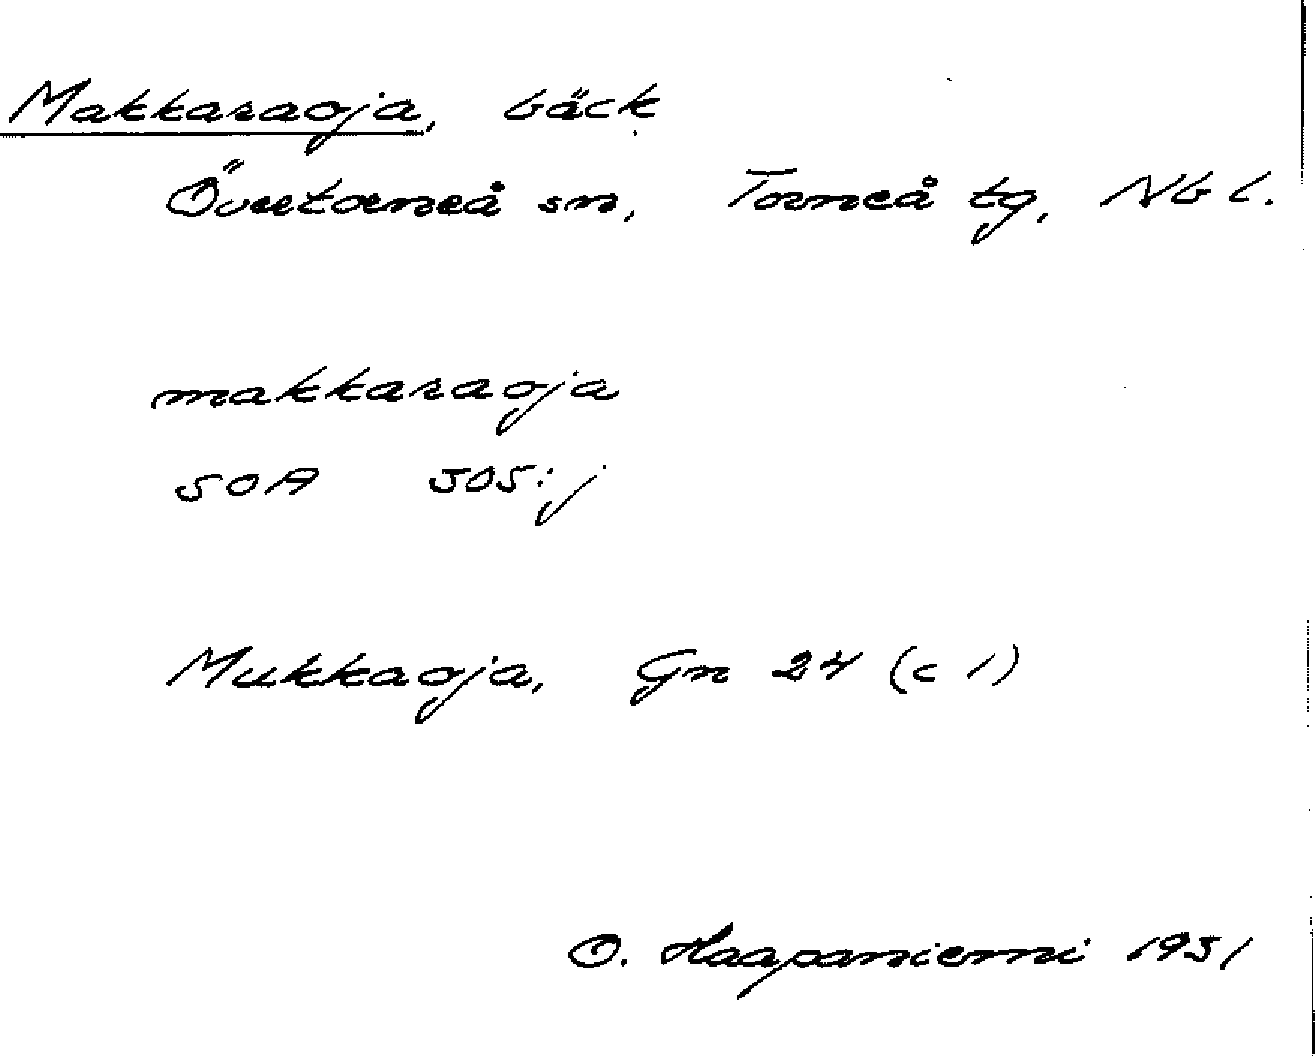 Makkaraoja, bäck
Övertorneå sn, Torneå tg, Nb l.
makkaraoja
SOA 305:j
Mukkaoja, Gn 24 (c 1)
O. Haapaniemi 1931